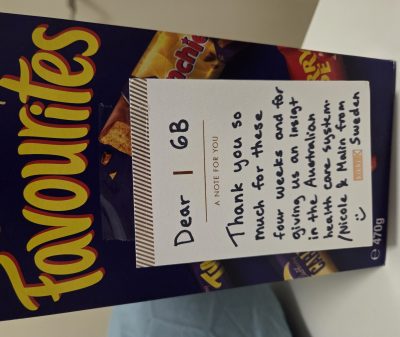 Favourites
Dear 1 GB
A NOTE FOR YOU
Thank you so
much for these
four weeks and for
giving us an insigt
in the Australian
health care system.
/Nicole & Malin from
Sweden
:)
e 470g